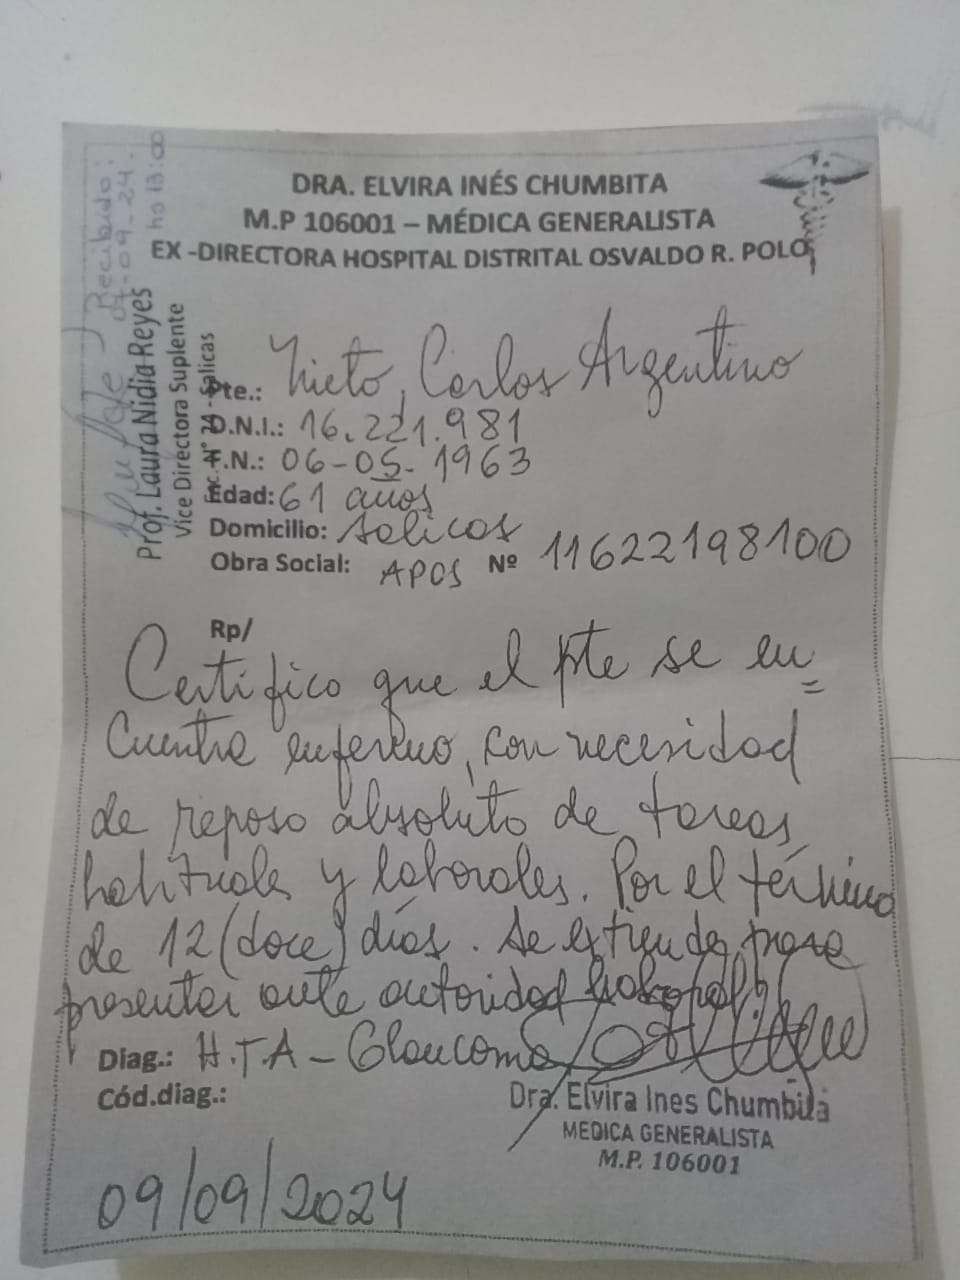 DRA. ELVIRA INÉS CHUMBITA
M.P 106001 – MÉDICA GENERALISTA
EX -DIRECTORA HOSPITAL DISTRITAL OSVALDO R. POLO
Recibido:
09-24.
hs 13:00
Prof. Laura Nidia Reyes
Vice Directora Suplente
Salicas
Pte.: Nieto, Carlos Argentino
D.N.I.: 16.221.981
F.N.: 06-05-1963
Edad: 61 años
Domicilio: Salicas
Obra Social: APOS Nº 11622198100
Rp/
Certifico que el pte se en
cuentra enfermo, con necesidad
de reposo absoluto de tareas
habituales y laborales. Por el término
de 12 (doce) días. Se extiende para
presentar ante autoridad laboral
Diag.: H.T.A - Glaucoma
Cód.diag.:
Dra. Elvira Ines Chumbita
MEDICA GENERALISTA
M.P. 106001
09/09/2024